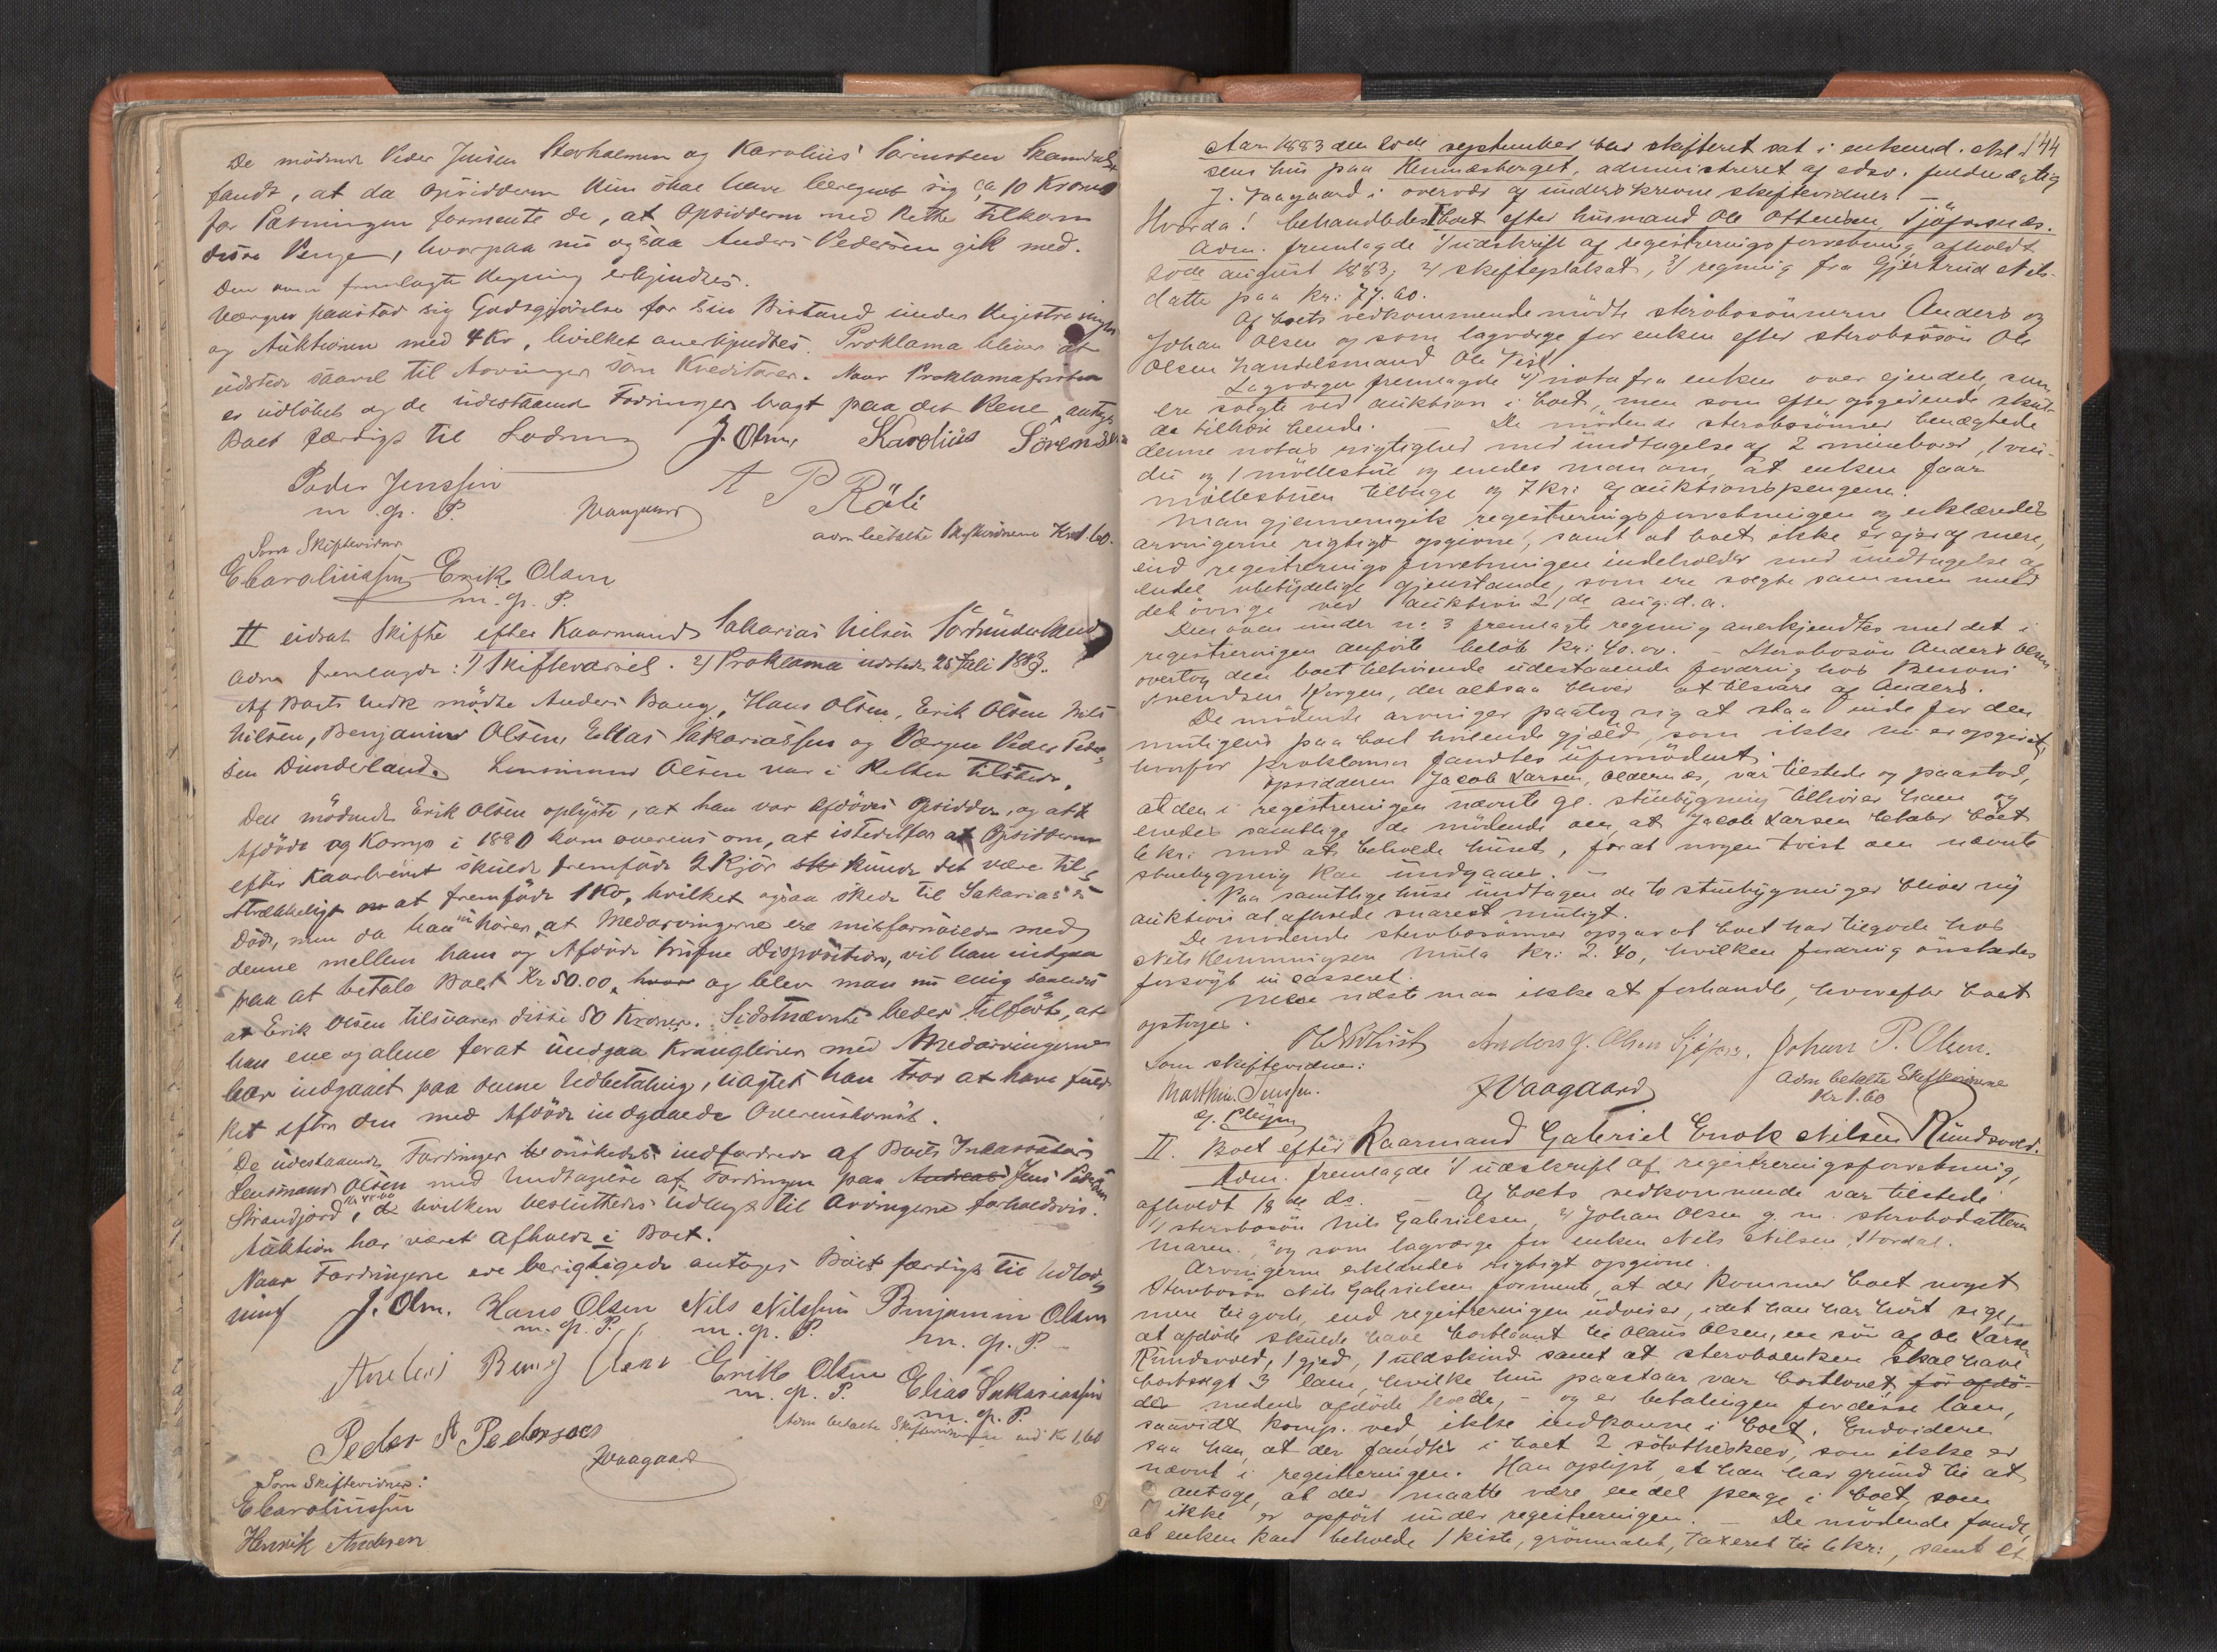 De mödende Peder Jensen Storholmen og Karolius Sörensen
fandt, at da Opsidderen kun skal have beregnet sig ca 10 Kroner
for Pasningen formente de, at Opsidderen med Rette tilkom
disse Penge, hvorpaa nu ogsaa Anders Pedersen gik med.
Den oven fremlagte Regning erkjendtes.
Værgen paastod sig Godtgjörelse for sin Bistand under Registreringen
og Auktionen med 4 Kr, hvilket anerkjendtes. Proklama bliver at
udstede saavel til Arvinger som Kreditorer. Naar Proklamafristen
er udlöbet og de udestaaende Fordringer bragt paa det Rene, antages
Boet færdigt til Lodning J. Olsen Karolius Sörensen
Peder Jenssen A P Röli
m. p. P. Vaagaard
adm betalte Skiftevidnerne Kr 1.60.
Som Skiftevidner
E Caroliussen Erik Olsen
m. p. P.
II eidsat Skifte efter Kaarmand Sakarias Nilsen Nordnunderland
adm fremlagde: 1) Skiftevarsel. 2) Proklama udstedt 25 Juli 1883.
Af Boets Vedk mödte Anders Bang, Hans Olsen, Erik Olsen Nils
Nilsen, Benjamin Olsen Elias Sakariassen og Værgen Peder Peder-
sen Dunderland. Lensmand Olsen var i Retten tilstede.
Den mödende Erik Olsen oplyste, at han var Afdödes Opsidder, og at
Afdöde og Komp i 1880 kom overens om, at istedetfor at Opsidderen
efter Kaarbrevet skulde fremföde 2 Kjör kunde det være til-
strækkeligt at fremföde 1 Ko, hvilket ogsaa skede til Sakarias's
Död, men da han nu hörer, at Medarvingerne ere misfornöiede med
denne mellem ham og Afdöde trufne Disposition, vil han indgaa
paa at betale Boet Kr 50.00, og blev man nu enig saaledes
at Erik Olsen tilsvarer disse 50 Kroner. Sidstnævnte beder tilfört, at
han ene og alene for at undgaa Kranglerier med Medarvingerne
har indgaaet paa denne Udbetaling, uagtet han tror at have fuld
Ret efter den med Afdöde indgaaede Overenskomst.
De udestaaende Fordringer önskedes indfordrede af Boets Inkassator
Lensmand Olsen med Undtagelse af Fordringen paa Jens Pedersen
Strandjord, hvilken besluttedes udlagt til Arvingerne forholdsvis.
Auktion har været afholdt i Boet.
Naar Fordringerne ere berigtigede antages Boet færdigt til Udlod-
ning J. Olsen. Hans Olsen Nils Nilssen Benjamin Olsen
m. p. P. m. p. P. m. p. P.
Anders Bang Erik Olsen Elias Sakariassen
m. p. P. m. p. P.
Peder Pedersen adm betalte Skiftevidnerne med Kr 1,60
Vaagaard
Som Skiftevidner:
E Caroliussen
Henrik Andersen
144
Aar 1883 den 20de september blev skifteret sat i enkemd.
sens hus paa Hemnæsberget, administreret af edsv. fuldmægtig
J. Vaagaard i overvær af underskrevne skiftevidner. —
Hvorda! behandledes I boet efter husmand Ole Ottersen, Sjöfornæs.
Adm. fremlagde 1/ udskrift af registreringsforretning afholdt
20de august 1883; 2/ skifteplakat, 3/ regning fra Gjertrud Nils-
datter paa kr: 77.60.
Af boets vedkommende mödte sterbosönnerne Anders og
Johan Olsen og som lagværge for enken efter sterbosön Ole
Olsen handelsmand Ole Vist.
Lagværgen fremlagde 4/ nota fra enken over ejendele, som
ere solgte ved auktion i boet, men som efter opgivende skul-
de tilhöre hende. — De mödende sterbosönner benægtede
denne notas rigtighed med undtagelse af 2
og 1 möllestue og enedes man om, at enken faar
möllestuen tilbage og 7 kr: af auktionspengene.
Man gjennemgik registreringsforretningen og erklæredes
arvingerne rigtigt opgivne, samt at boet ikke er ejer af mere,
end registreringsforretningen indeholder med undtagelse af
endel ubetydelige gjenstande, som ere solgte sammen med
det övrige ved auktion 21de aug. d. a.
Den oven under no 3 fremlagte regning anerkjendtes med det i
registreringen anförte belöb kr: 40. — Sterbosön Anders Olsen
overtog den boet tilhörende udestaaende fordring hos Benoni
Svendsen Vargen, der altsaa bliver at tilsvare af Anders.
De mödende arvinger paatog sig at staa inde for den
muligens paa boet hvilende gjæld, som ikke nu er opgivet,
hvorfor proklama fandtes ufornödent.
Opsidderen Jacob Larsen, Oldernæs, var tilstede og paastod,
at den i registreringen nævnte gl. stuebygning tilhörer ham og
enedes samtlige de mödende om, at Jacob Larsen betaler boet
6 kr: mod at beholde huset, forat nogen tvist om nævnte
stuebygning kan undgaaes. —
Paa samtlige huse undtagen de to stuebygninger bliver ny
auktion at afholde snarest muligt.
De mödende sterbosönner opgav at boet har tilgode hos
Nils Hemmingsen Mula kr: 2.40, hvilken fordring önskedes
forsögt incasseret.
Mere vidste man ikke at forhandle, hvorefter boet
optoges.
Anders J. Olsen Sjöfors. Johan P. Olsen.
Som skiftevidne: adm betalte Skiftevidnerne
Matthias Jenssen. JVaagaard Kr 1.60
II. Boet efter Kaarmand Gabriel Enok Nilsen Rundvold.
Adm. fremlagde 1/ udskrift af registreringsforretning,
afholdt 18de ds. — Af boets vedkommende var tilstede
1/ sterbosön Nils Gabrielsen, 2/ Johan Olsen g. m. sterbodatteren
Maren, og som lagværge for enken Nils Nilsen, Stordal.
Arvingerne erklærdes rigtigt opgivne.
Sterbosön Nils Gabrielsen formente, at der kommer boet noget
mere tilgode, end registreringen udviser, idet han har hört sige
at afdöde skulde have bortlaant til Olaus Olsen, en sön af Ole Larsen
Rundvold, 1 gjed, 1 uldskind samt at sterboenken skal have
bortsolgt 3 lam, hvilke hun paastaar var bortlovet för afdö-
des medens afdöde levede, — og er betalingen for disse lam,
saavidt komp. ved, ikke indkomne i boet. Endvidere
saa han, at der fandtes i boet 2 sölvtheskeer, som ikke er
nævnt i registreringen. Han oplyste, at han har grund til at
antage, at der maatte være endel penge i boet, som
ikke er opfört under registreringen. — De mödende fandt,
at enken kan beholde 1 kiste, grönmalet, taxeret til 6 kr:, samt et